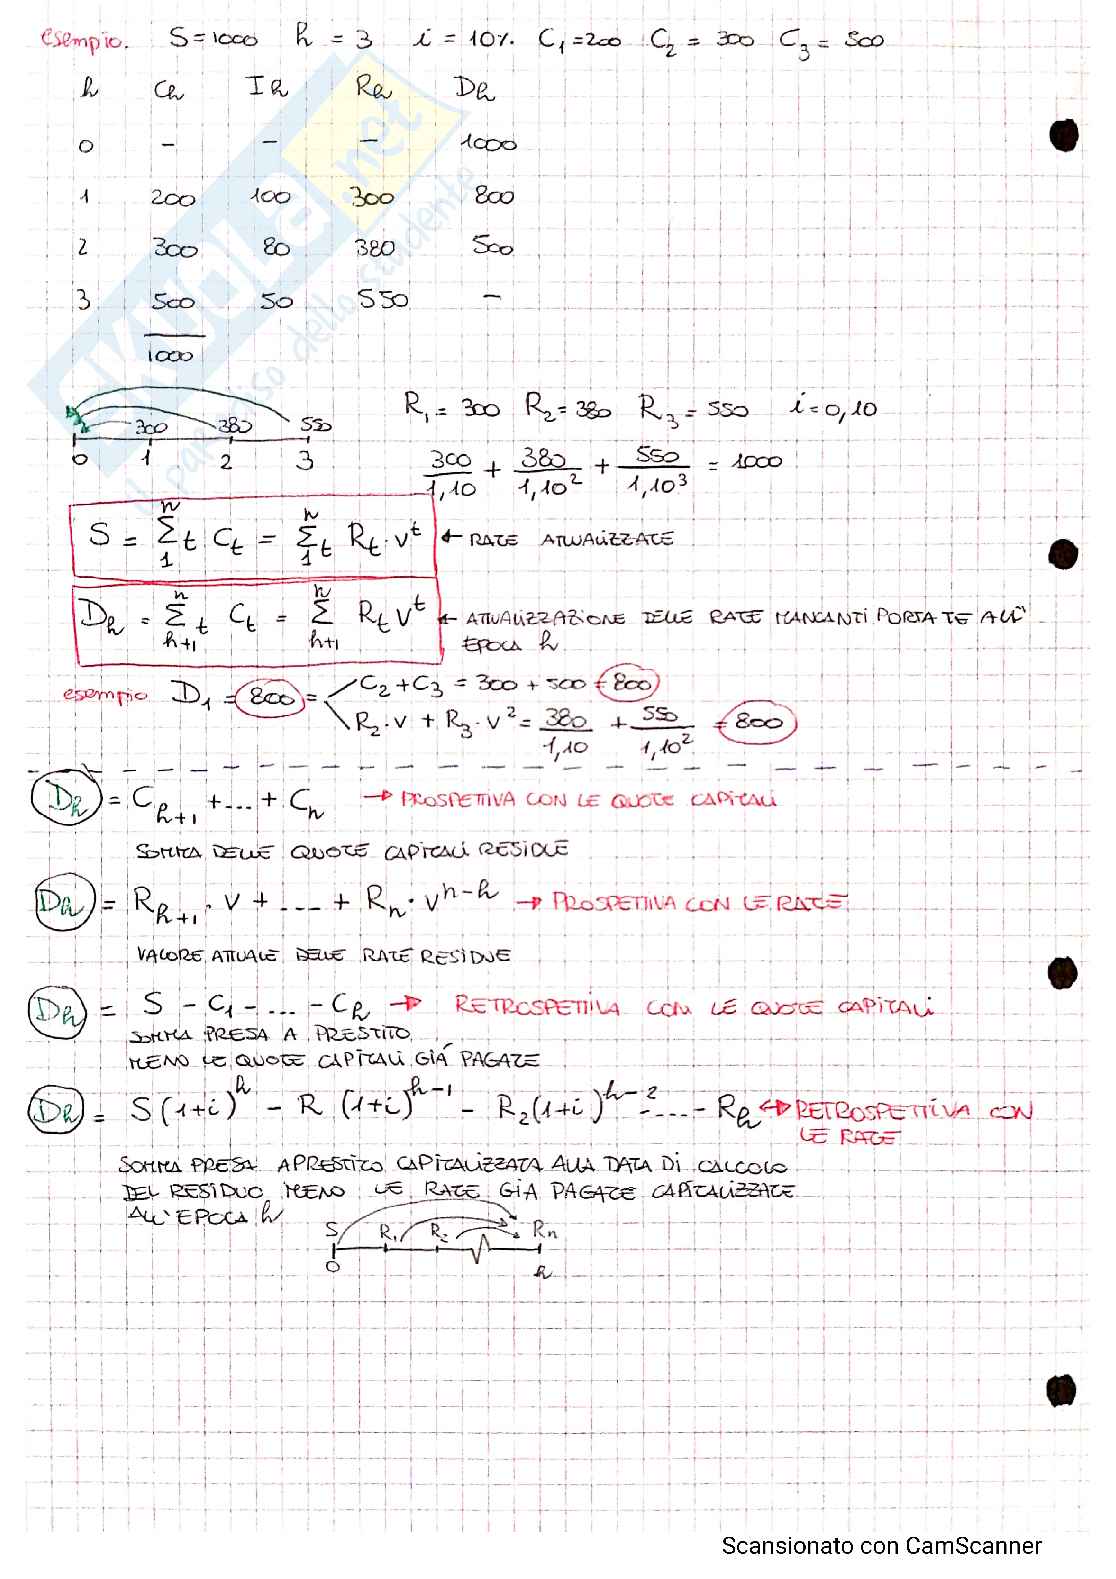 esempio. S=1000 n = 3 i = 10% C₁=200 C₂ = 300 C₃ = 500
h Ch Ih Rh Dh
0 - - - 1000
1 200 100 300 800
2 300 80 380 500
3 500 50 550 -
1000
300 380 550
0 1 2 3
R₁ = 300 R₂=380 R₃ = 550 i=0,10
300/1,10 + 380/1,10² + 550/1,10³ = 1000
S = Σ₁ⁿt Ct = Σ₁ⁿt Rt·vᵗ ← RATE ATTUALIZZATE
Dh = Σh+1ⁿ t Ct = Σh+1ⁿ Rt vᵗ ← ATTUALIZZAZIONE DELLE RATE MANCANTI PORTATE ALL'
EPOCA h
esempio D₁ = 800 = C₂+C₃ = 300 + 500 = 800
R₂·v + R₃·v² = 380/1,10 + 550/1,10² = 800
Dh = Ch+1 +...+ Cn → PROSPETTIVA CON LE QUOTE CAPITALI
SOMMA DELLE QUOTE CAPITALI RESIDUE
Dh = Rh+1·v + .... + Rn·vⁿ⁻ʰ → PROSPETTIVA CON LE RATE
VALORE ATTUALE DELLE RATE RESIDUE
Dh = S - C₁ - ... - Ch → RETROSPETTIVA CON LE QUOTE CAPITALI
SOMMA PRESA A PRESTITO
MENO LE QUOTE CAPITALI GIÁ PAGATE
Dh = S(1+i)ʰ - R (1+i)ʰ⁻¹ - R₂(1+i)ʰ⁻² -....- Rh ↔ RETROSPETTIVA CON
LE RATE
SOMMA PRESA A PRESTITO CAPITALIZZATA ALLA DATA DI CALCOLO
DEL RESIDUO MENO LE RATE GIA PAGATE CAPITALIZZATE
ALL'EPOCA h
S R₁ R₂ Rn
0 h
SKUOLA.net
il paradiso dello studente
Scansionato con CamScanner